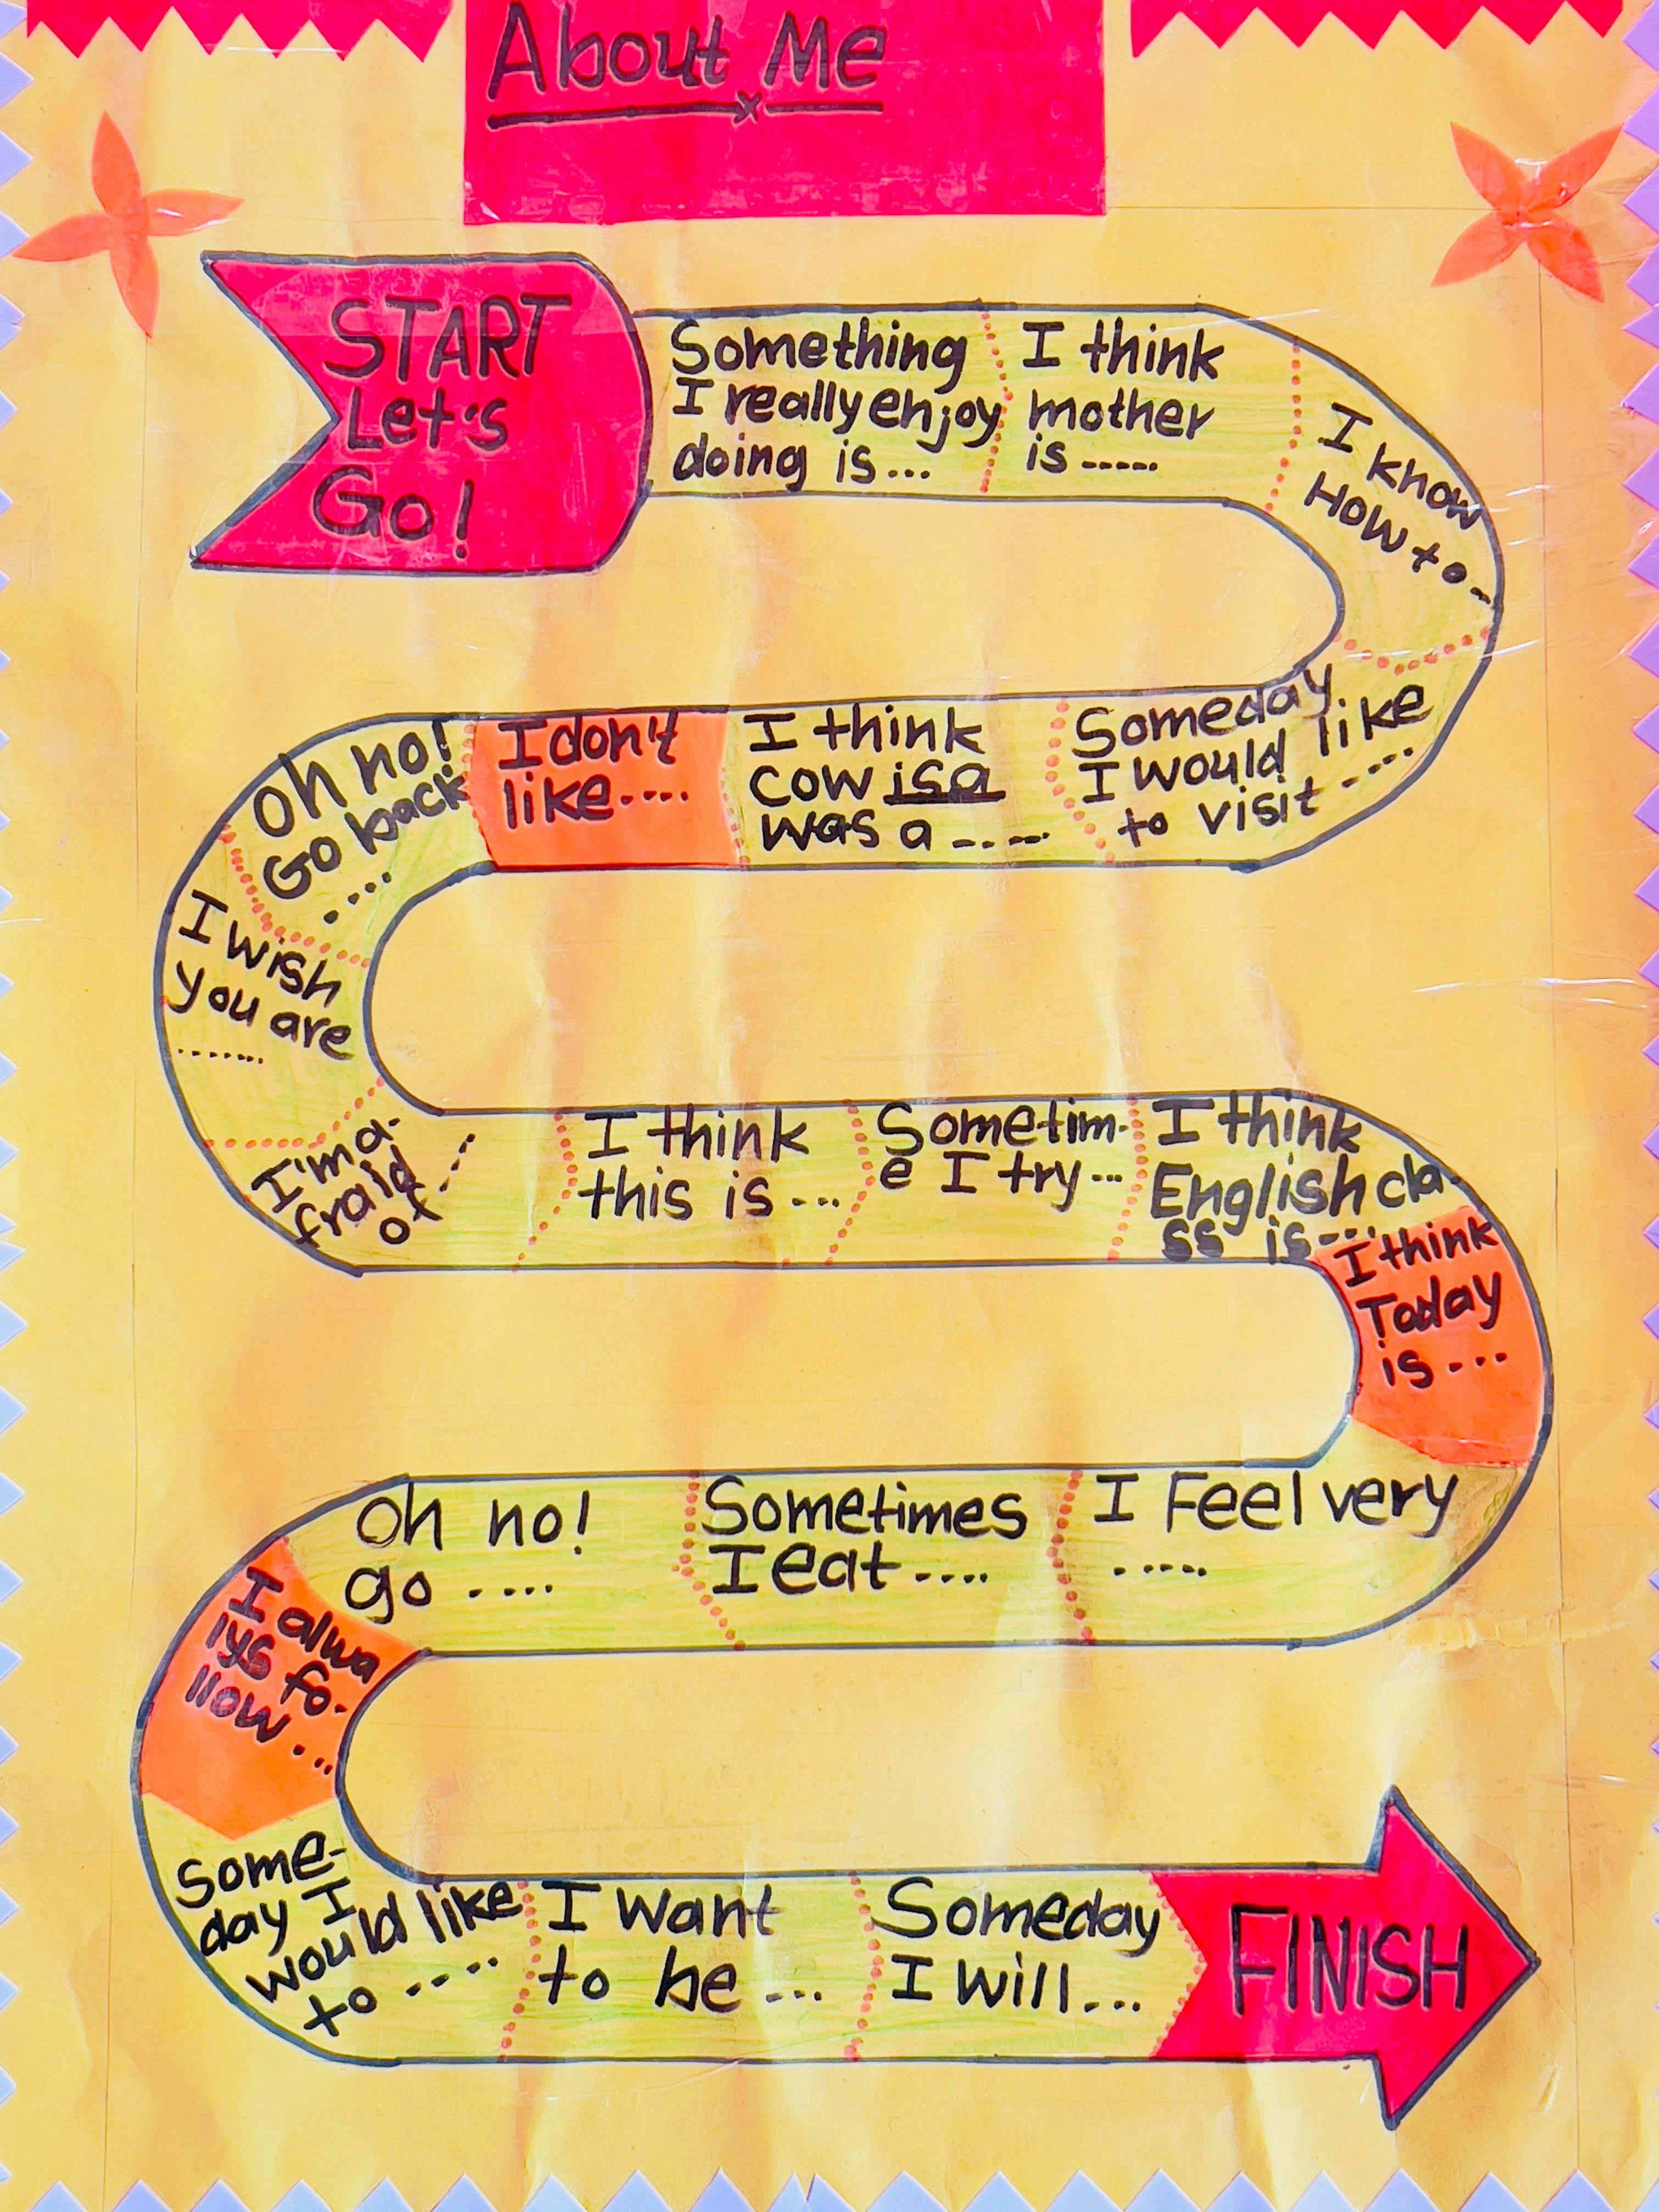 About Me
START
Let's
Go!
Something
I really enjoy
doing is...
I think
mother
is-----
I know
How to--
Someday
I would like
to visit----
I think
cow is a
was a -----
I don't
like....
Oh no!
Go back
....
I wish
you are
.......
I'm a-
fraid
of ----
I think
this is ...
Sometim-
e I try...
I think
English cla-
ss is----
I think
Today
is ---
I Feel very
.....
Sometimes
I eat ....
Oh no!
go ....
I alwa
lys fo-
llow ...
Some-
day I
would like
to ----
I want
to be ...
Someday
I will...
FINISH